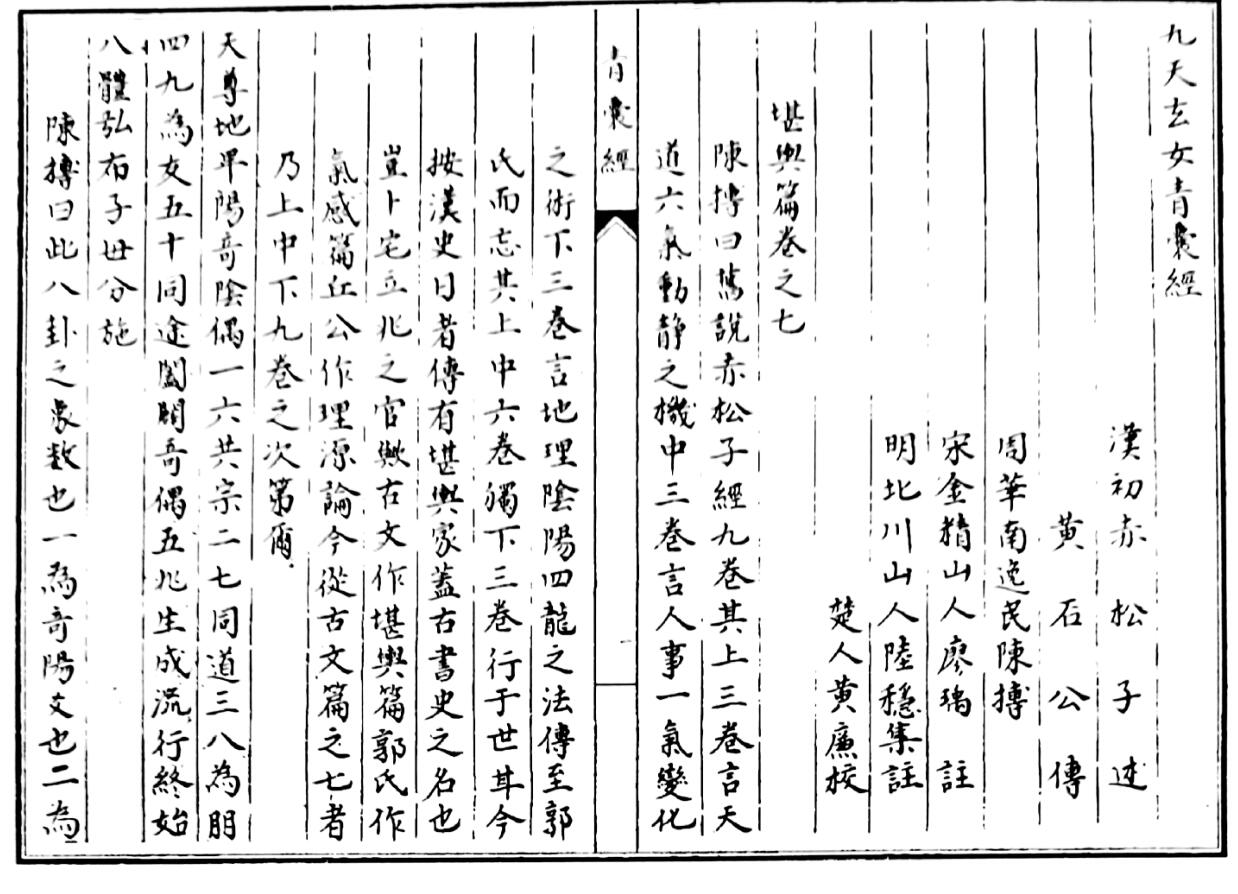 九天玄女青囊經
漢初赤松子述
黃石公傳
周華南逸民陳摶
宋金精山人廖瑀註
明北川山人陸穩集註
楚人黃廉校
堪輿篇卷之七
陳摶曰舊說赤松子經九卷其上三卷言天
道六氣動静之機中三卷言人事一氣變化
青囊經
之術下三卷言地理陰陽四龍之法傳至郭
氏而忘其上中六卷獨下三卷行于世耳今
按漢史日者傳有堪輿家蓋古書史之名也
豈卜宅立兆之官歟古文作堪輿篇郭氏作
氣感篇丘公作理源論今從古文篇之七者
乃上中下九卷之次第爾
天尊地畀陽奇陰偶一六共宗二七同道三八為朋
四九為友五十同途闔闢奇偶五兆生成流行終始
八體弘布子母分施
陳摶曰此八卦之象数也一為奇陽爻也二為